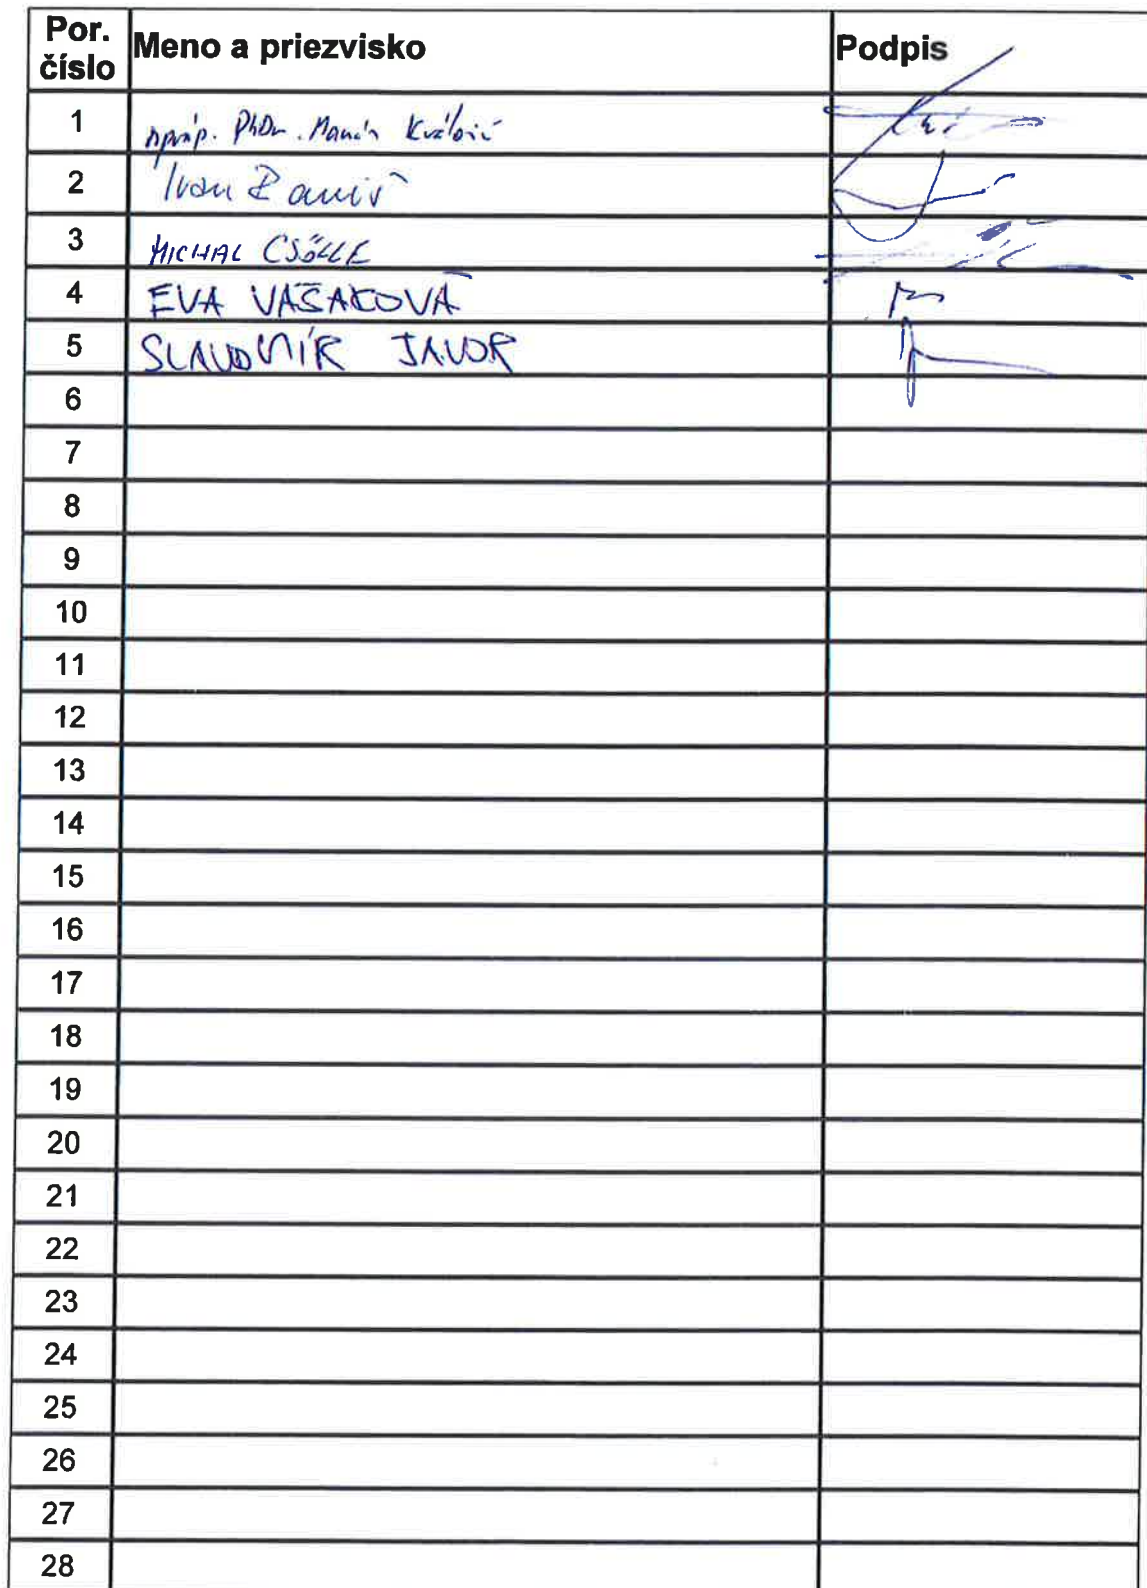 Por. číslo Meno a priezvisko Podpis
1 npráp. PhDr. Marián Králović
2 Ivan Banič
3 MICHAL CSÖLLE
4 EVA VAŠAKOVÁ
5 SLAVOMÍR JAVOR
6
7
8
9
10
11
12
13
14
15
16
17
18
19
20
21
22
23
24
25
26
27
28